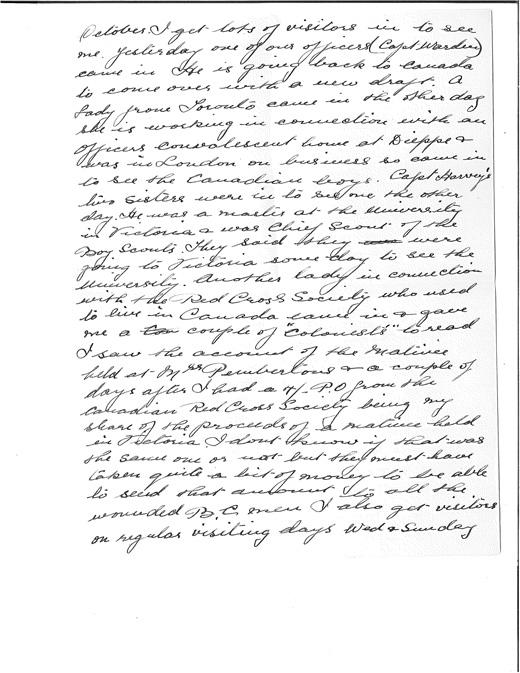 October. I get lots of visitors in to see
me. Yesterday one of our officers (Capt Warden)
came in He is going back to Canada
to come over with a new draft. A
Lady from Toronto came in the other day
she is working in connection with an
officers convalescent home at Dieppe &
was in London on business so came in
to see the Canadian boys. Capt Harvey's
two sisters were in to see me the other
day. He was a master at the University
in Victoria & was Chief Scout of the
Boy Scouts. They said they were
going to Victoria some day to see the
University. Another lady in connection
with the Red Cross Society who used
to live in Canada came in & gave
me a couple of "Colonists" to read
I saw the account of the Matinee
held at Mrs Pembertons & a couple of
days after I had a 4/- P.O from the
Canadian Red Cross Society being my
share of the proceeds of a matinee held
in Victoria I dont know if that was
the same one or not but they must have
taken quite a bit of money to be able
to send that amount to all the
wounded B.C. men I also get visitors
on regular visiting days Wed & Sunday